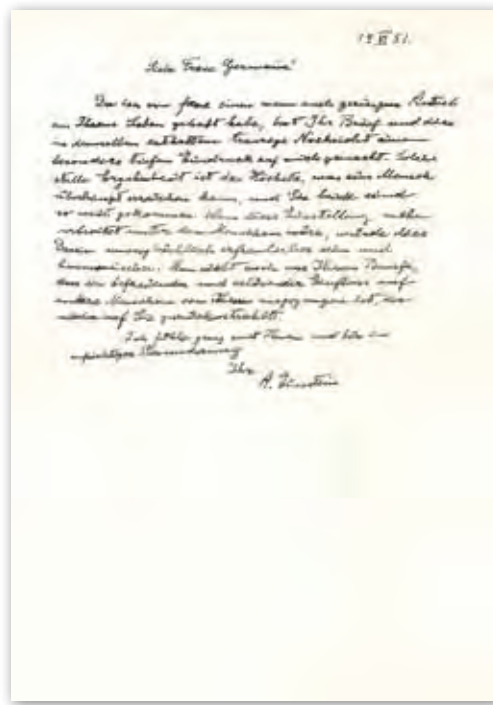 19 XI 51.
Liebe Frau Germaine!
Da ich von einen wenn auch geringen Anteil
an Ihrem Leben gehabt habe, hat Ihr Brief und die
in demselben enthaltene traurige Nachricht einen
besonders tiefen Eindruck auf mich gemacht. Solche
stille Ergebenheit ist das Höchste, was ein Mensch
überhaupt erreichen kann, und Sie beide sind
so weit gekommen. Wenn diese Einstellung mehr
verbreitet unter den Menschen wäre, würde das
Dasein unvergleichlich erfreulicher sein und
harmonischer. Man sieht auch aus Ihrem Briefe,
dass ein befreiender und Einfluss auf
andere Menschen von Ihnen ausgegangen ist, der
wieder auf Sie zurückstrahlt.
Ich fühle ganz mit Ihnen und bin in
aufrichtiger
Ihr
A. Einstein